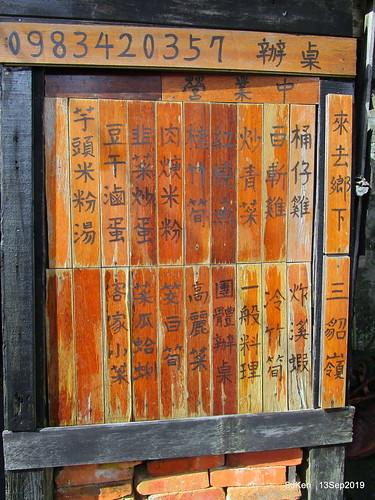 0983420357 辦桌
營業中
來去鄉下
三貂嶺
桶仔雞
白斬雞
炒青菜
紅燒魚
桂竹筍
肉焿米粉
韭菜炒蛋
豆干滷蛋
芋頭米粉湯
炸溪蝦
冷竹筍
一般料理
團體辦桌
高麗菜
茭白筍
菜瓜蛤蜊
客家小菜
SdKen 13Sep2019